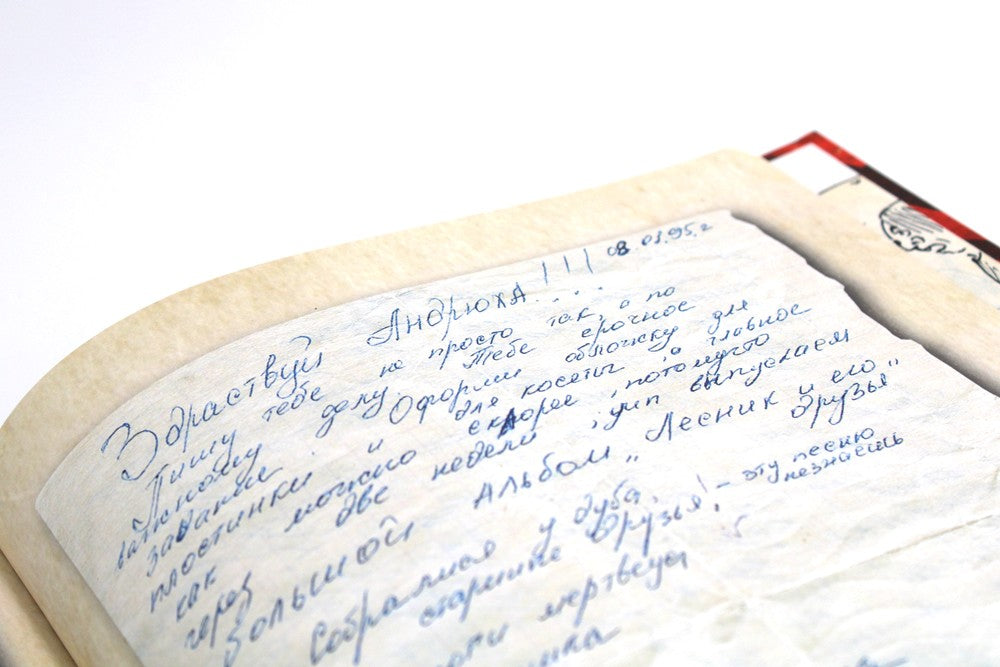 08.03.95.г
Здраствуй Андрюха!!!
Пишу тебе не просто так, а по
важному делу. Тебе срочное
задание. Оформи обложку для
пластинки и для касеты, а главное
как можно скорее, потомучто
через две недели, уип выпускаем
Большой Альбом „Лесник и его
друзья"
Собрались у дуба,
старшие друзья! - эту песню
незнаешь
мертвеца